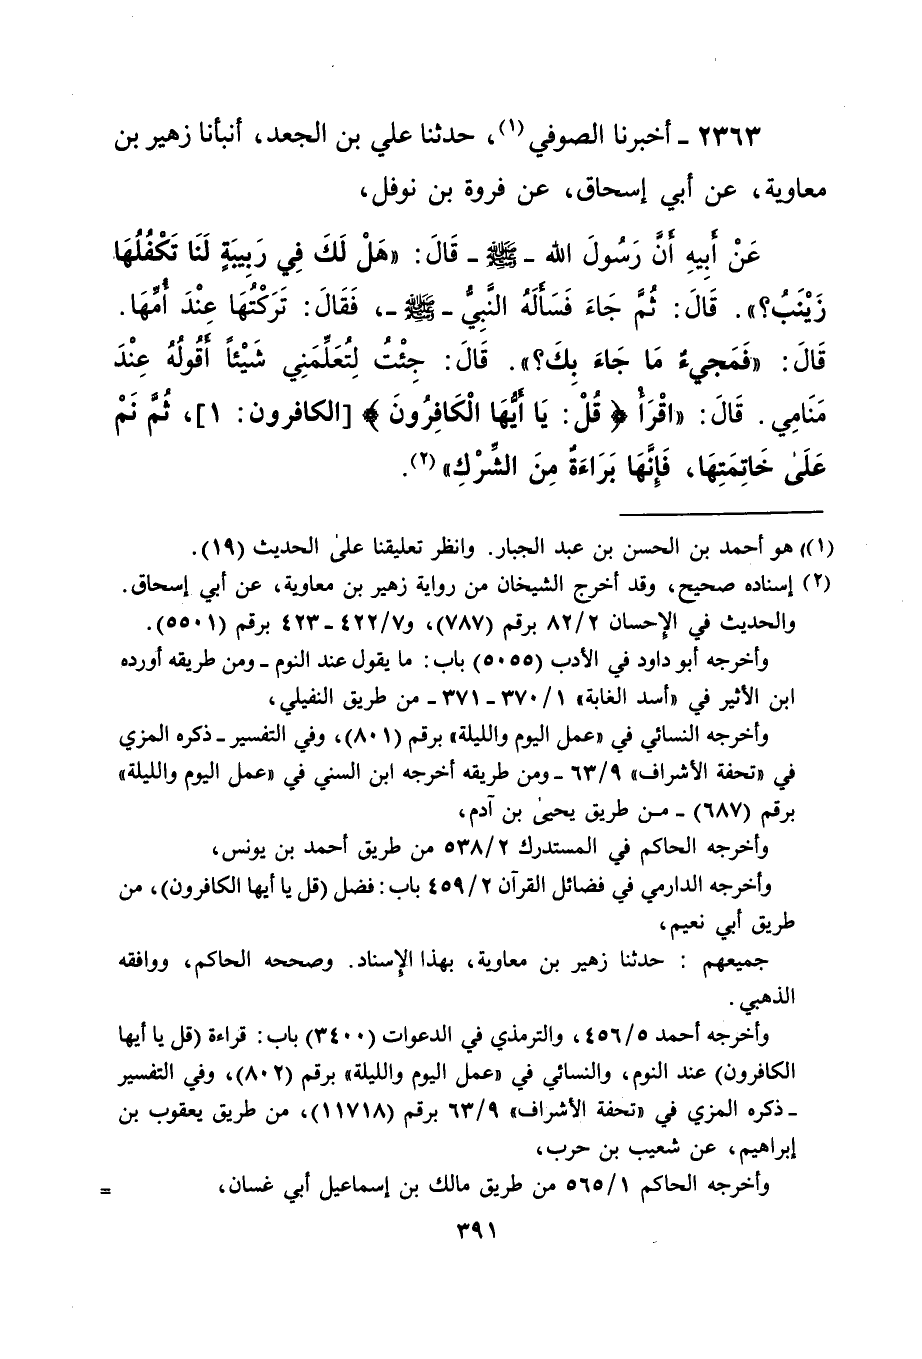 ٢٣٦٣ ـ أخبرنا الصوفي(١)، حدثنا علي بن الجعد، أنبأنا زهير بن
معاوية، عن أبي إسحاق، عن فروة بن نوفل،
عَنْ أَبِيهِ أَنَّ رَسُولَ الله ـ ﷺ ـ قَالَ: «هَلْ لَكَ فِي رَبِيبَةٍ لَنَا تَكْفُلُهَا
زَيْنَبُ؟». قَالَ: ثُمَّ جَاءَ فَسَأَلَهُ النَّبِيُّ ـ ﷺ ـ، فَقَالَ: تَرَكْتُهَا عِنْدَ أُمِّهَا.
قَالَ: «فَمَجِيءُ مَا جَاءَ بِكَ؟». قَالَ: جِئْتُ لِتُعَلِّمَنِي شَيْئاً أَقُولُهُ عِنْدَ
مَنَامِي. قَالَ: «اقْرَأْ ﴿ قُلْ: يَا أَيُّهَا الْكَافِرُونَ ﴾ [الكافرون: ١]، ثُمَّ نَمْ
عَلَىٰ خَاتِمَتِهَا، فَإِنَّهَا بَرَاءَةٌ مِنَ الشِّرْكِ»(٢).
(١)) هو أحمد بن الحسن بن عبد الجبار. وانظر تعليقنا على الحديث (١٩).
(٢) إسناده صحيح، وقد أخرج الشيخان من رواية زهير بن معاوية، عن أبي إسحاق.
والحديث في الإحسان ٨٢/٢ برقم (٧٨٧)، و٤٢٢/٧ ـ ٤٢٣ برقم (٥٥٠١).
وأخرجه أبو داود في الأدب (٥٠٥٥) باب: ما يقول عند النوم ـ ومن طريقه أورده
ابن الأثير في «أسد الغابة» ٣٧٠/١ ـ ٣٧١ ـ من طريق النفيلي،
وأخرجه النسائي في «عمل اليوم والليلة» برقم (٨٠١)، وفي التفسير ـ ذكره المزي
في «تحفة الأشراف» ٦٣/٩ ـ ومن طريقه أخرجه ابن السني في «عمل اليوم والليلة»
برقم (٦٨٧) ـ من طريق يحيىٰ بن آدم،
وأخرجه الحاكم في المستدرك ٥٣٨/٢ من طريق أحمد بن يونس،
وأخرجه الدارمي في فضائل القرآن ٤٥٩/٢ باب: فضل (قل يا أيها الكافرون)، من
طريق أبي نعيم،
جميعهم : حدثنا زهير بن معاوية، بهذا الإسناد. وصححه الحاكم، ووافقه
الذهبي.
وأخرجه أحمد ٤٥٦/٥، والترمذي في الدعوات (٣٤٠٠) باب: قراءة (قل يا أيها
الكافرون) عند النوم، والنسائي في «عمل اليوم والليلة» برقم (٨٠٢)، وفي التفسير
ـ ذكره المزي في «تحفة الأشراف» ٦٣/٩ برقم (١١٧١٨)، من طريق يعقوب بن
إبراهيم، عن شعيب بن حرب،
وأخرجه الحاكم ٥٦٥/١ من طريق مالك بن إسماعيل أبي غسان، =
٣٩١